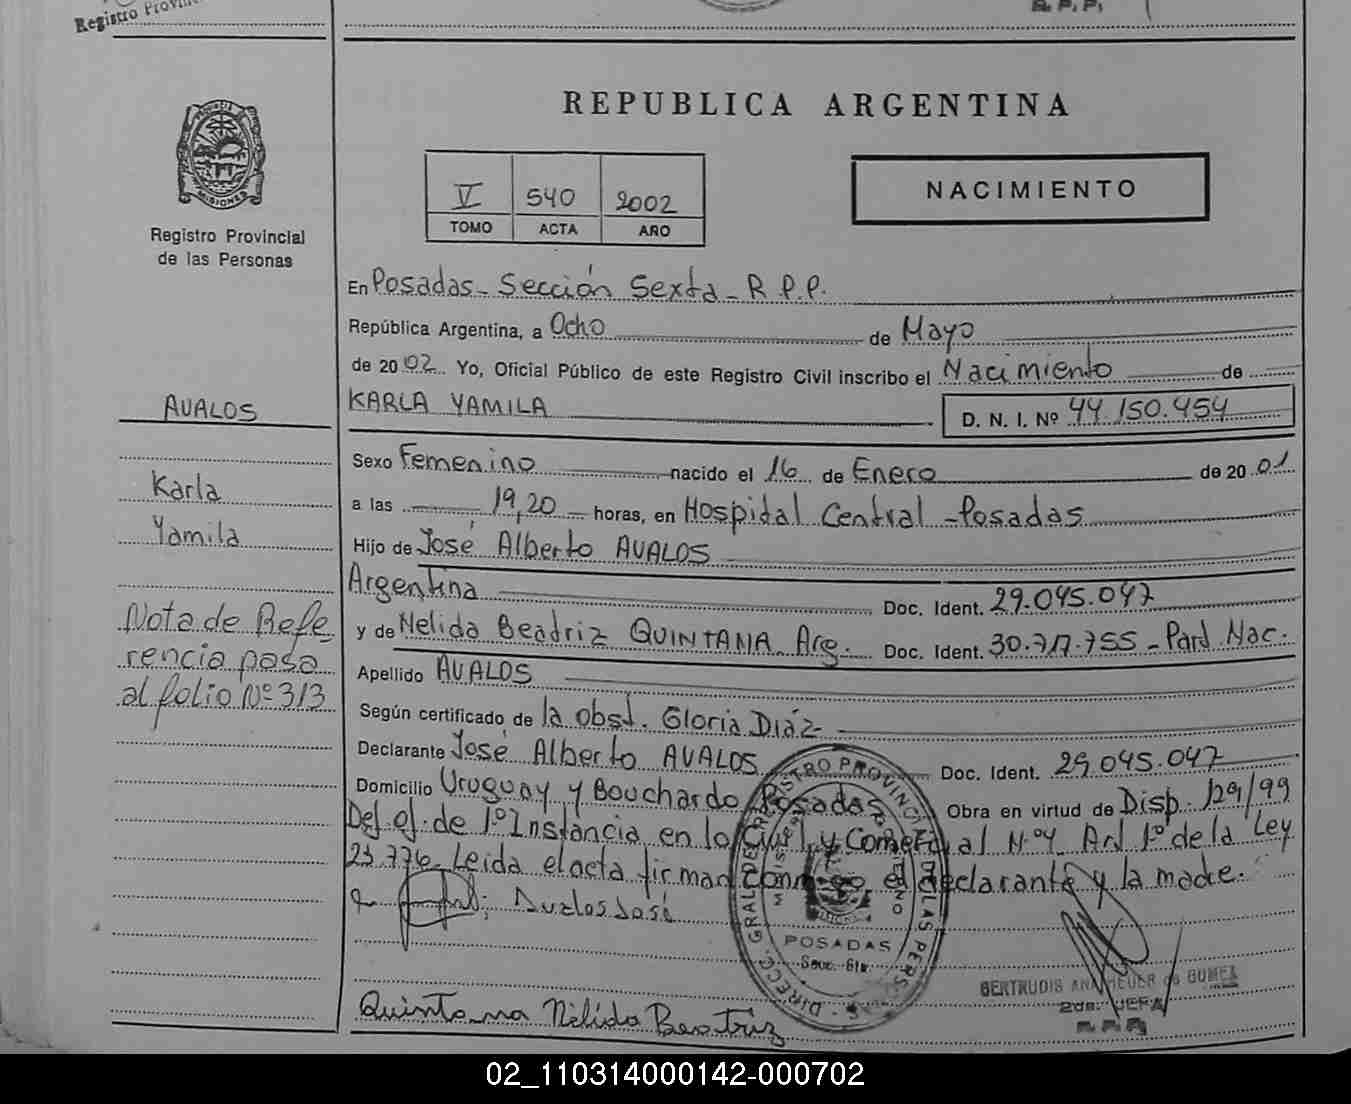 Registro Provin
R. P. P.
REPUBLICA ARGENTINA
PROVINCIA MISIONES
Registro Provincial
de las Personas
V 540 2002
TOMO ACTA AÑO
NACIMIENTO
En Posadas - Sección Sexta - R.P.P.
República Argentina, a Ocho de Mayo
de 2002 Yo, Oficial Público de este Registro Civil inscribo el Nacimiento de
KARLA YAMILA
D. N. I. Nº 44.150.454
AVALOS
Karla
Yamila
Nota de Refe
rencia pasa
al folio Nº 313
Sexo Femenino nacido el 16 de Enero de 2001
a las 19,20 horas, en Hospital Central - Posadas
Hijo de José Alberto AVALOS
Argentina Doc. Ident. 29.045.047
y de Nelida Beatriz QUINTANA Arg. Doc. Ident. 30.717.755 - Pard Nac.
Apellido AVALOS
Según certificado de la obst. Gloria Diáz
Declarante José Alberto AVALOS Doc. Ident. 29.045.047
Domicilio Uruguay y Bouchardo Posadas Obra en virtud de Disp. 129/99
Def. of. de 1º Instancia en lo Civil y Comercial Nº4 Art 1º de la Ley
23.776. Leida el acta firman conmigo, el declarante y la madre.
Avalos José
Quintana Nélida Beatriz
POSADAS
Secc. 6ta.
GERTRUDIS ANA HEUER de GOMEZ
2da. JEFA
R.P.P.
02_110314000142-000702